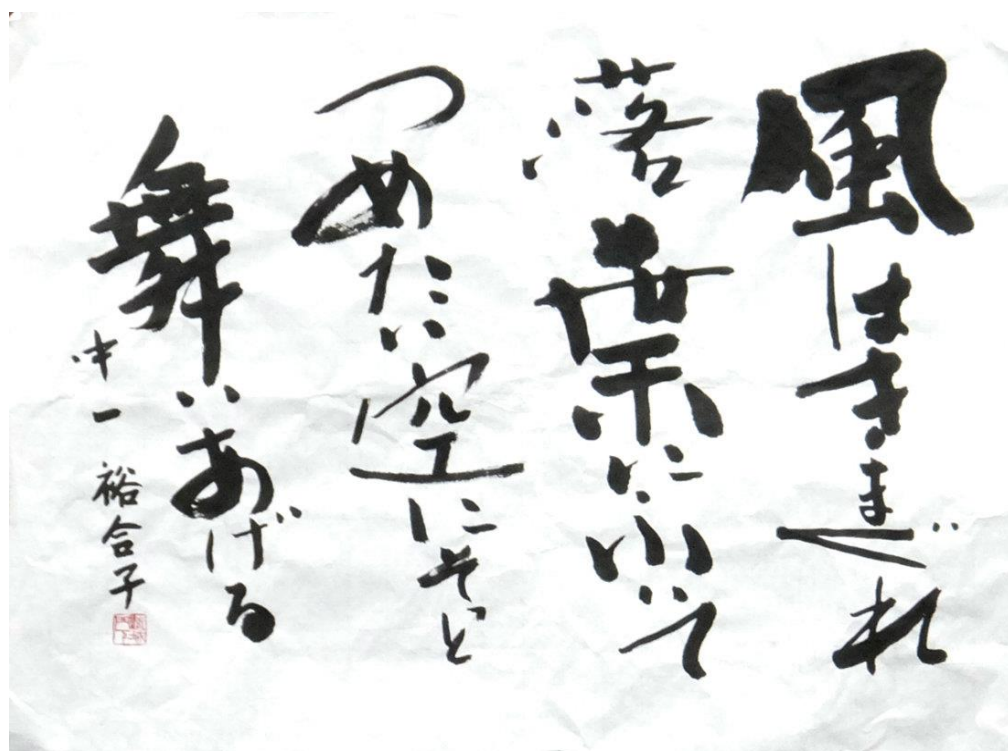 風はきまぐれ
落葉にふいて
つめたい空にそっと
舞いあげる
中一 裕合子